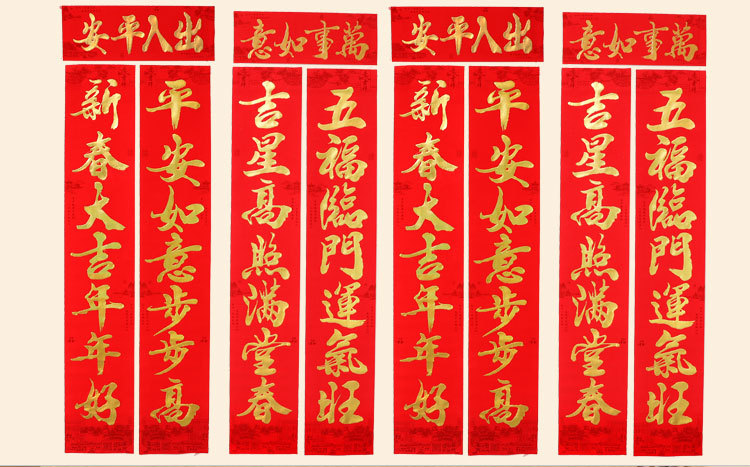 出入平安
平安如意步步高
新春大吉年年好
萬事如意
五福臨門運氣旺
吉星高照满堂春
出入平安
平安如意步步高
新春大吉年年好
萬事如意
五福臨門運氣旺
吉星高照满堂春